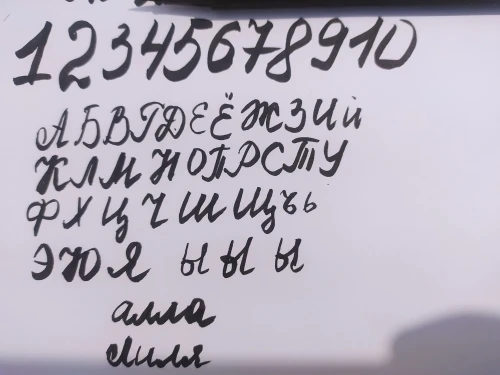 12345678910
АБВГДЕЁЖЗИй
КЛМНОПРСТУ
ФХЦЧШЩъь
ЭЮЯ ы ы ы
алла
Лиля